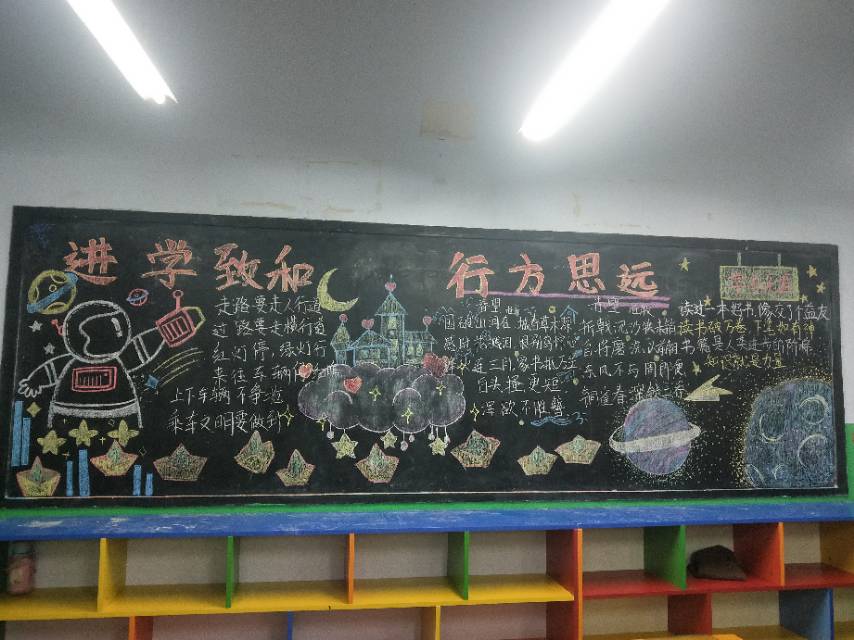 进学致和
行方思远
走路要走人行道
过路要走横行道
红灯停,绿灯行
来往车辆
上下车辆不争抢
乘车文明要做到
春望
国破山河在 城春草木深
感时
三月,家书抵万金
白头搔更短
浑欲不胜簪
赤壁
折戟沉沙铁未销
东风不与周郎便
铜雀春深锁二乔
读过一本好书,像交了个益友
读书破万卷,下笔如有神
书籍是人类进步的阶梯
知识就是力量